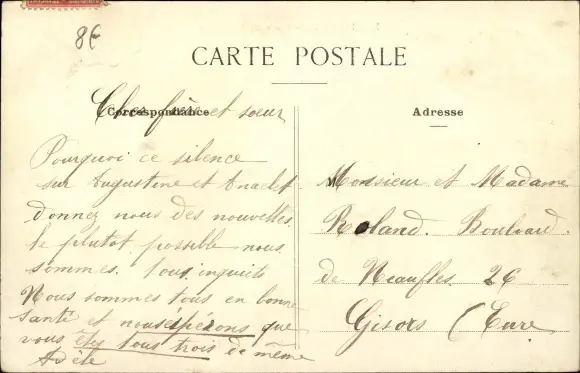 8€
CARTE POSTALE
Correspondance
Adresse
Chers frère et soeur
Pourquoi ce silence
sur Augustine et Anaclet
donnez nous des nouvelles
le plutot possible nous
sommes tous inquiets
Nous sommes tous en bonne
santé et nous éspérons que
vous êtes tous trois de même
Adèle
Monsieur et Madame
Roland. Boulvard.
de Neaufles 26
Gisors (Eure